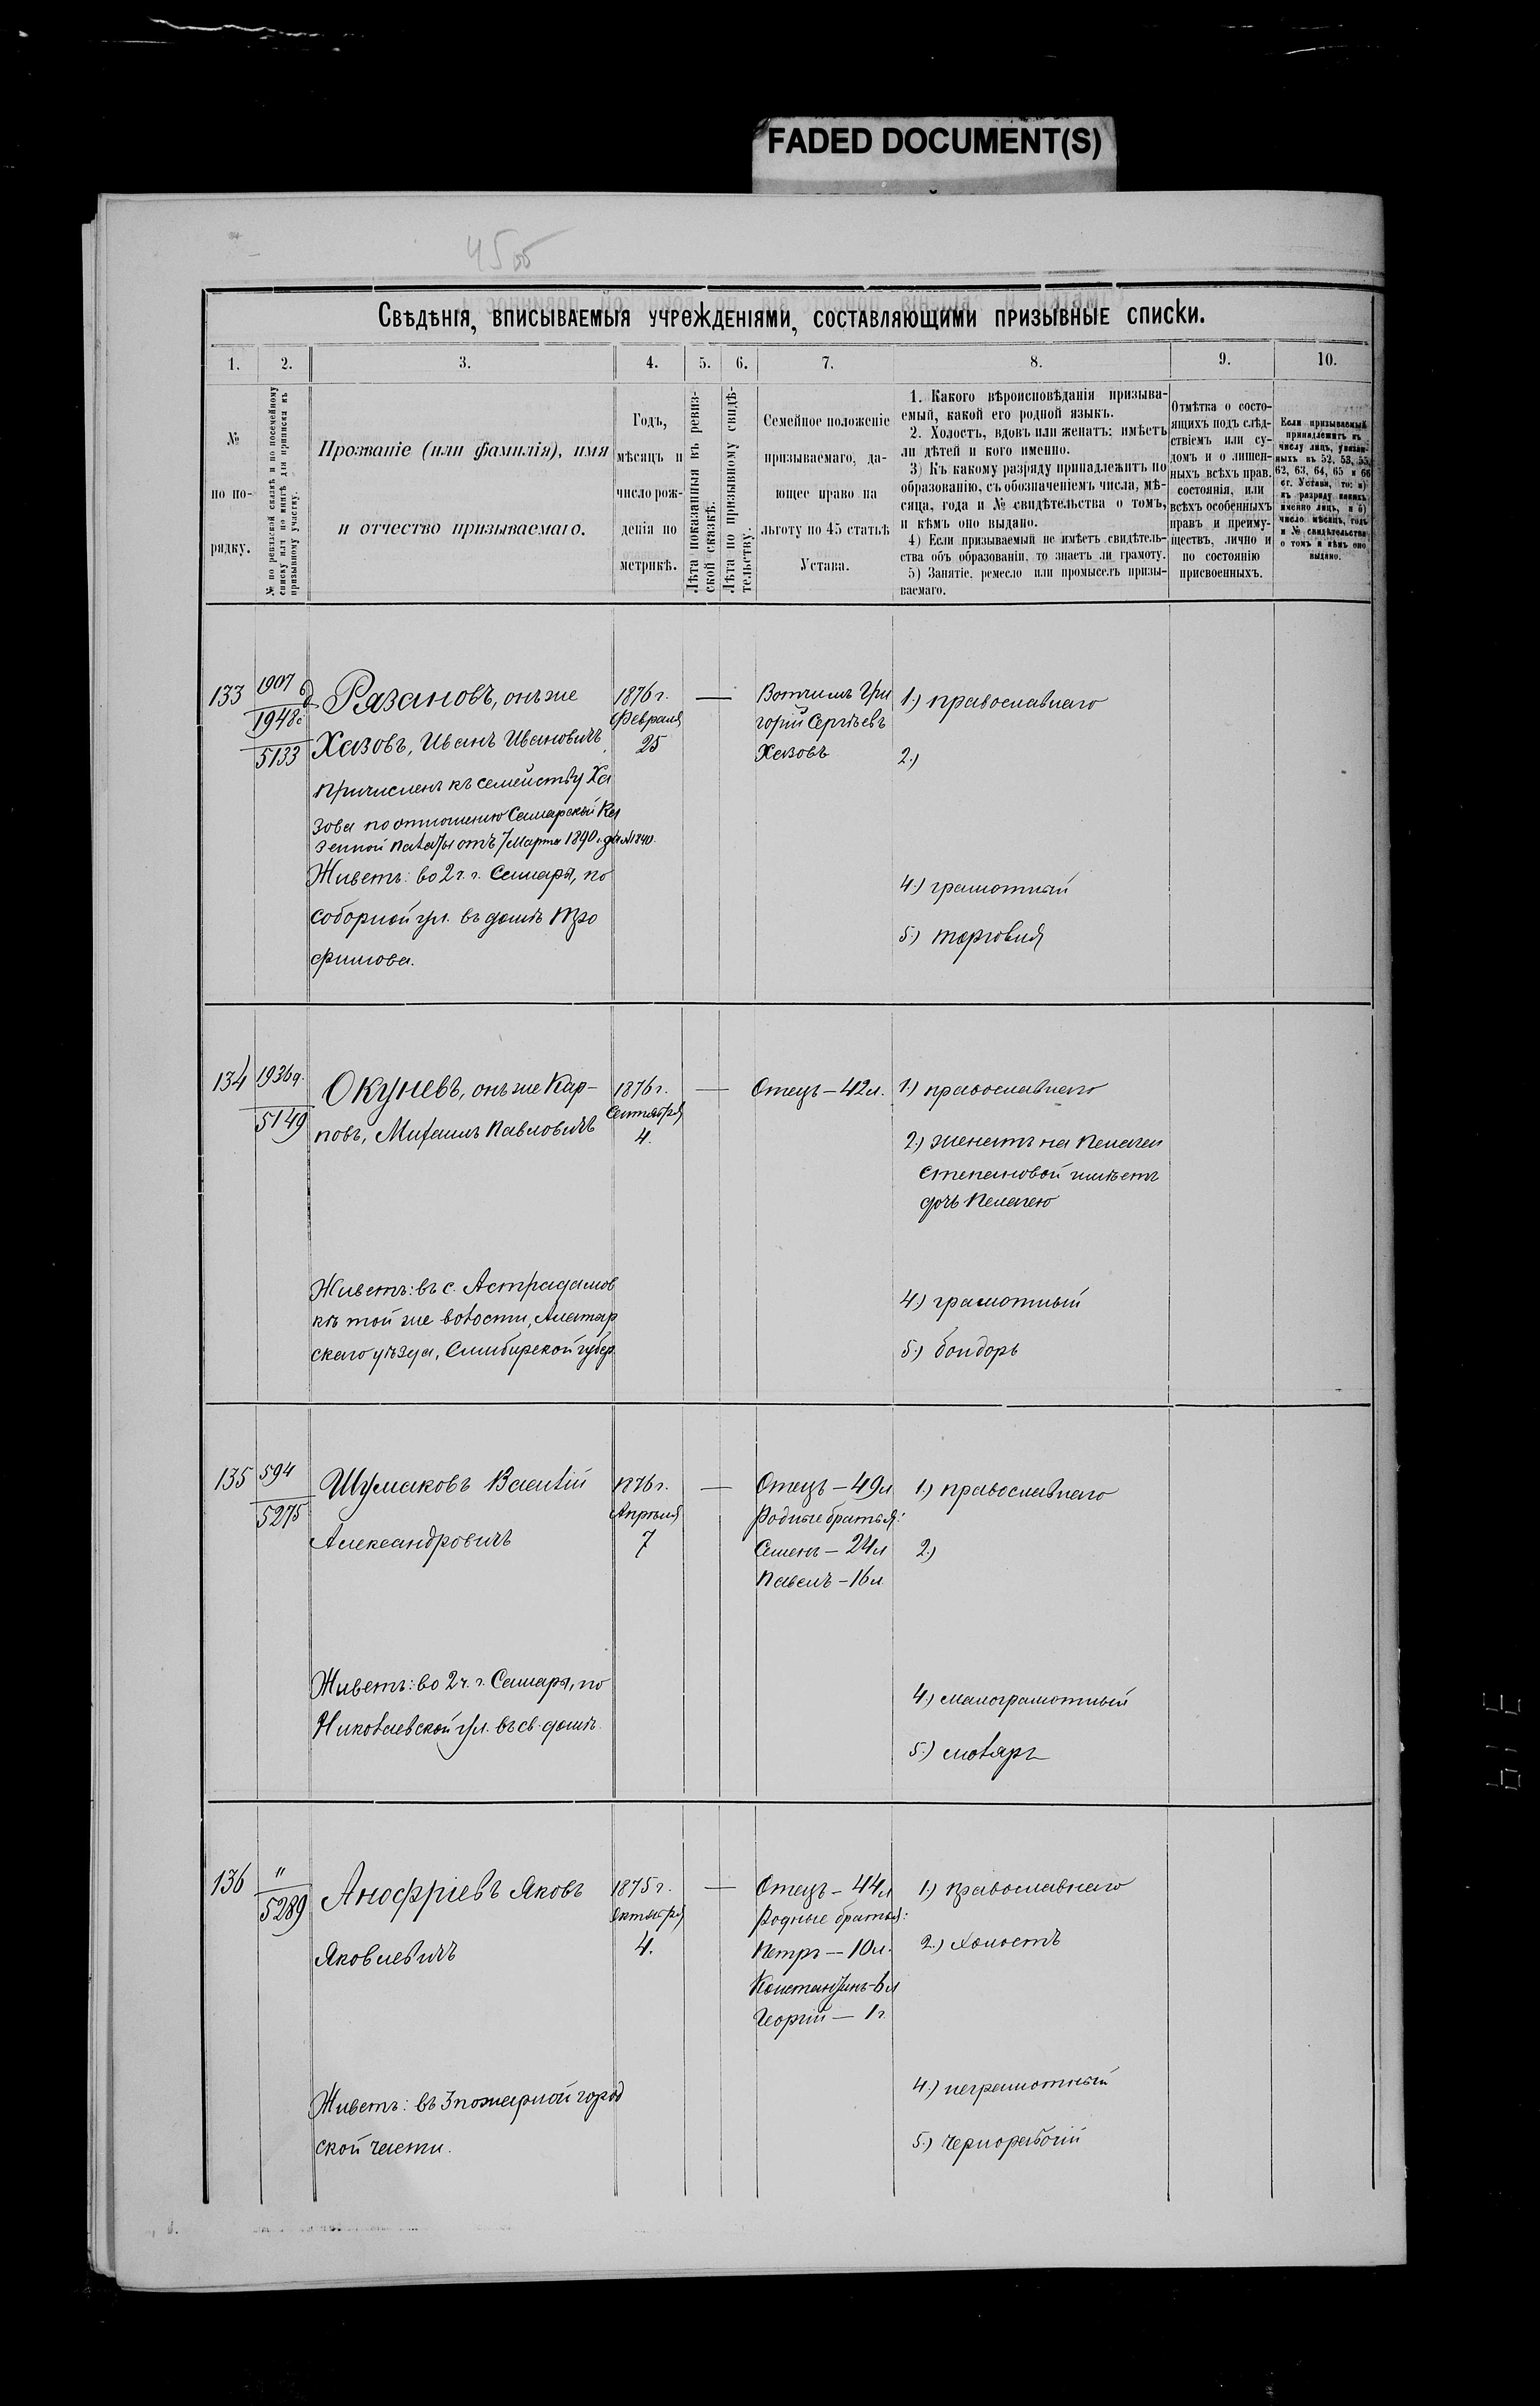 FADED DOCUMENT(S)
45об
Свѣдѣнія, вписываемыя учрежденіями, составляющими призывные списки.
1. 2. 3. 4. 5. 6. 7. 8. 9. 10.
№
по по-
рядку.
№ по ревизской сказкѣ и по посемейному
списку или по книгѣ для приписки къ
призывному участку.
Прозваніе (или фамилія), имя
и отчество призываемаго.
Годъ,
мѣсяцъ и
число рож-
денія по
метрикѣ.
Лѣта показанныя въ ревиз-
ской сказкѣ.
Лѣта по призывному свидѣ-
тельству.
Семейное положеніе
призываемаго, да-
ющее право на
льготу по 45 статьѣ
Устава.
1. Какого вѣроисповѣданія призыва-
емый, какой его родной языкъ.
2. Холостъ, вдовъ или женатъ; имѣетъ
ли дѣтей и кого именно.
3) Къ какому разряду принадлежитъ по
образованію, съ обозначеніемъ числа, мѣ-
сяца, года и № свидѣтельства о томъ,
и кѣмъ оно выдано.
4) Если призываемый не имѣетъ свидѣтель-
ства объ образованіи, то знаетъ ли грамоту.
5) Занятіе, ремесло или промыселъ призы-
ваемаго.
Отмѣтка о состо-
ящихъ подъ слѣд-
ствіемъ или су-
домъ и о лишен-
ныхъ всѣхъ прав.
состоянія, или
всѣхъ особенныхъ
правъ и преиму-
ществъ, лично и
по состоянію
присвоенныхъ.
Если призываемый
принадлежитъ къ
числу лицъ, указан-
ныхъ въ 52, 53, 55,
62, 63, 64, 65 и 66
ст. Устава, то: а)
къ разряду какихъ
именно лицъ, и б)
число мѣсяцъ, годъ
и № свидѣтельства
о томъ и кѣмъ оно
выдано.
133
1907
1948
5133
Рязановъ, онъ же
Хазовъ, Иванъ Ивановичъ
причисленъ къ семейству Ха
зова по отношенію Самарской Ка
зенной палаты отъ 7 Марта 1890 г. за № 1840.
Живетъ: во 2 ч. г. Самары, по
соборной ул. въ домѣ Тро
фимова.
1876 г.
Февраля
25
—
Вотчимъ Гри
горій Сергѣевъ
Хазовъ
1.) православнаго
2.)
4.) грамотный
5.) торговля
134
1936 а.
5149
Окуневъ, онъ же Кар-
повъ, Михаилъ Павловичъ
Живетъ: въ с. Астрадамов
кѣ той же волости, Алатар
скаго уѣзда, Симбирской губер
1876 г.
Сентября
4.
—
Отецъ — 42 л.
1.) православнаго
2.) женатъ на Пелагеи
Степановой имѣетъ
дочь Пелагею
4.) грамотный
5.) бондарь
135
594
5275
Шумаковъ Василій
Александровичъ
Живетъ: во 2 ч. г. Самары, по
Николаевской ул. въ св. домѣ.
1876 г.
Апрѣля
7
—
Отецъ — 49 л
Родные братья:
Семенъ — 24 л
Павелъ — 16 л.
1.) православнаго
2.)
4.) малограмотный
5.) столяръ
136
"
5289
Анофріевъ Яковъ
Яковлевичъ
Живетъ: въ 3 пожарной город
ской части.
1875 г.
Октября
4.
—
Отецъ — 44 л
Родные братья:
Петръ — 10 л.
Константинъ — 6 л
Георгій — 1 г.
1.) православнаго
2.) холостъ
4.) неграмотный
5.) чернорабочій
319